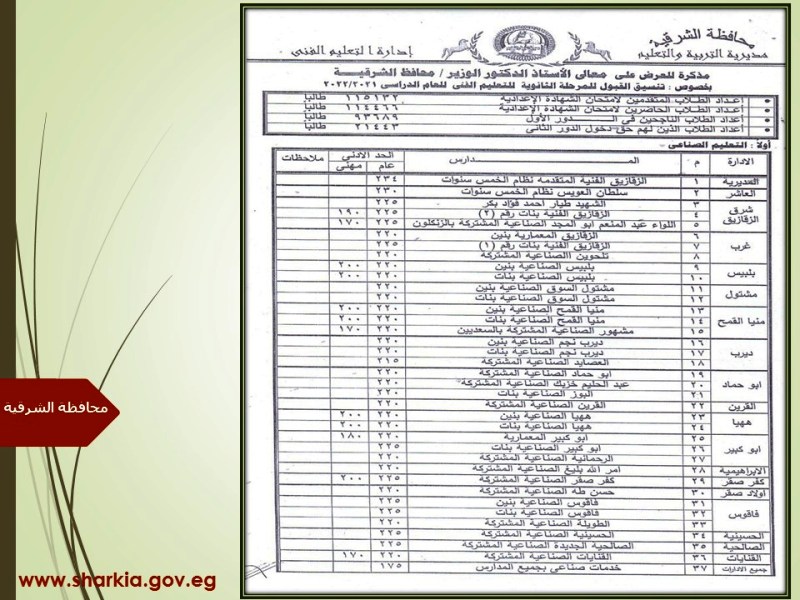 محافظة الشرقية
مديرية التربية والتعليم
إدارة التعليم الفنى
مذكرة للعرض على معالى الأستاذ الدكتور الوزير / محافظ الشرقية
بخصوص : تنسيق القبول للمرحلة الثانوية للتعليم الفنى للعام الدراسى ٢٠٢٢/٢٠٢١
• أعداد الطلاب المتقدمين لامتحان الشهادة الإعدادية ١١٥١٣٢ طالبا
• أعداد الطلاب الحاضرين لامتحان الشهادة الإعدادية ١١٤٤٦٦ طالبا
• أعداد الطلاب الناجحين فى الدور الأول ٩٣٦٨٩ طالبا
• أعداد الطلاب الذين لهم حق دخول الدور الثانى ٢١٤٤٣ طالبا
أولا : التعليم الصناعى
الادارة م المدارس الحد الادنى ملاحظات
عام مهنى
المديرية ١ الزقازيق الفنية المتقدمه نظام الخمس سنوات ٢٣٤
العاشر ٢ سلطان العويس نظام الخمس سنوات ٢٣٠
شرق الزقازيق ٣ الشهيد طيار احمد فؤاد بكر ٢٢٥
٤ الزقازيق الفنية بنات رقم (٢) ٢٢٥ ١٩٠
٥ اللواء عبد المنعم ابو المجد الصناعية المشتركة بالزنكلون ٢٢٥ ١٧٠
غرب ٦ الزقازيق المعمارية بنين ٢٢٠
٧ الزقازيق الفنية بنات رقم (١) ٢٢٥
٨ تلحوين الصناعية المشتركة ٢٢٠
بلبيس ٩ بلبيس الصناعية بنين ٢٢٠ ٢٠٠
١٠ بلبيس الصناعية بنات ٢٢٠ ٢٠٠
مشتول ١١ مشتول السوق الصناعية بنين ٢٢٠
١٢ مشتول السوق الصناعية بنات ٢٢٠
منيا القمح ١٣ منيا القمح الصناعية بنين ٢٢٠ ٢٠٠
١٤ منيا القمح الصناعية بنات ٢٢٠ ٢٠٠
١٥ مشهور الصناعية المشتركة بالسعديين ٢٢٠ ١٧٠
ديرب ١٦ ديرب نجم الصناعية بنين ٢٢٠
١٧ ديرب نجم الصناعية بنات ٢٢٠
١٨ العصايد الصناعية المشتركة ٢١٥
ابو حماد ١٩ ابو حماد الصناعية المشتركة ٢٢٠
٢٠ عبد الحليم خزبك الصناعية المشتركة ٢٢٠
٢١ البوز الصناعية بنات ٢٢٠
القرين ٢٢ القرين الصناعية المشتركة ٢٢٠
ههيا ٢٣ ههيا الصناعية بنين ٢٢٠ ٢٠٠
٢٤ ههيا الصناعية بنات ٢٢٠ ٢٠٠
ابو كبير ٢٥ ابو كبير المعمارية ٢٢٠ ١٨٠
٢٦ ابو كبير الصناعية بنات ٢٢٥
٢٧ الرحمانية الصناعية المشتركة ٢٢٠
الابراهيمية ٢٨ امر الله بليغ الصناعية المشتركة ٢٢٠
كفر صقر ٢٩ كفر صقر الصناعية المشتركة ٢٢٥ ٢٠٠
اولاد صقر ٣٠ حسن طه الصناعية المشتركة ٢٢٠
فاقوس ٣١ فاقوس الصناعية بنين ٢٢٥
٣٢ فاقوس الصناعية بنات ٢٢٥
٣٣ الطويلة الصناعية المشتركة ٢٢٠
الحسينية ٣٤ الحسينية الصناعية المشتركة ٢٢٥
الصالحية ٣٥ الصالحية الجديدة الصناعية المشتركة ٢٢٥
القنايات ٣٦ القنايات الصناعية المشتركة ٢٢٠ ١٧٠
جميع الادارات ٣٧ خدمات صناعى بجميع المدارس ١٧٥
محافظة الشرقية
www.sharkia.gov.eg